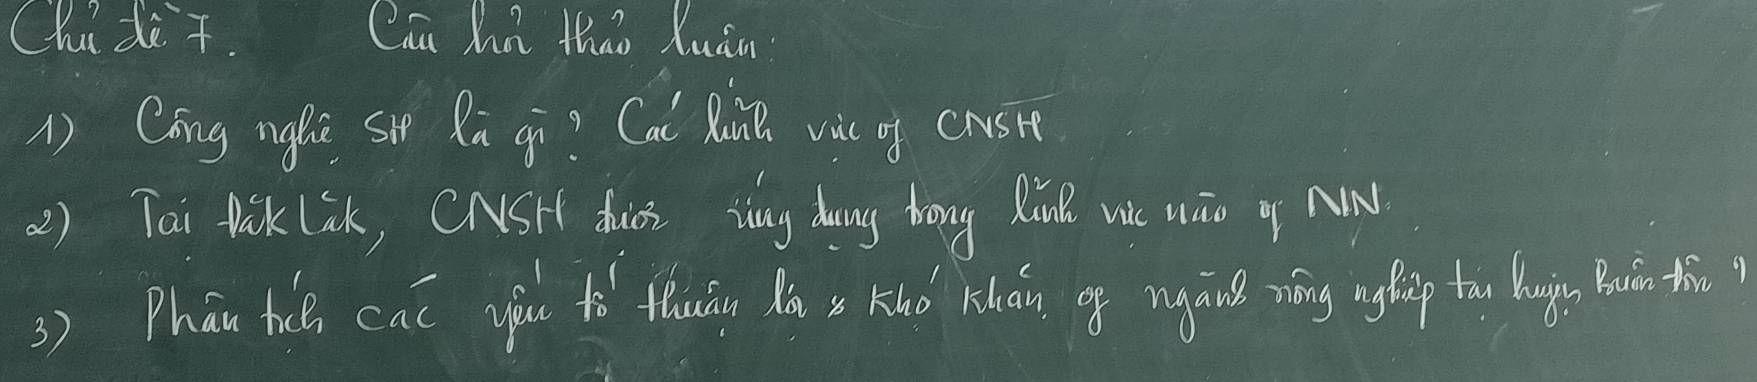 Chủ đề 7. Câu hỏi thảo luận:
1) Công nghệ SH là gì? Các lĩnh vực of CNSH
2) Tại Đăk Lăk, CNSH được ứng dụng trong lĩnh vực nào of NN.
3) Phân tích các yếu tố thuận lợi & khó khăn of ngành nông nghiệp tại huyện Buôn Đôn?